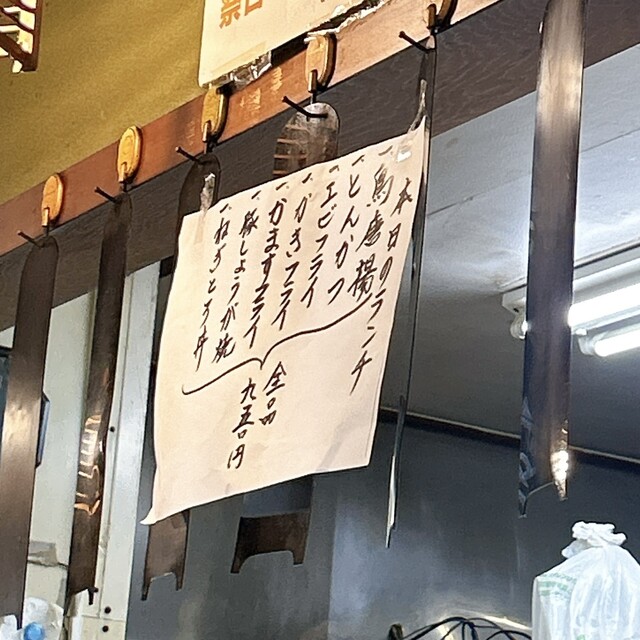 本日のランチ
一、鳥唐揚
一、とんかつ
一、エビフライ
一、かきフライ
一、かますフライ
一、豚しょうが焼
一、ねぎとろ丼
全品
九五〇円